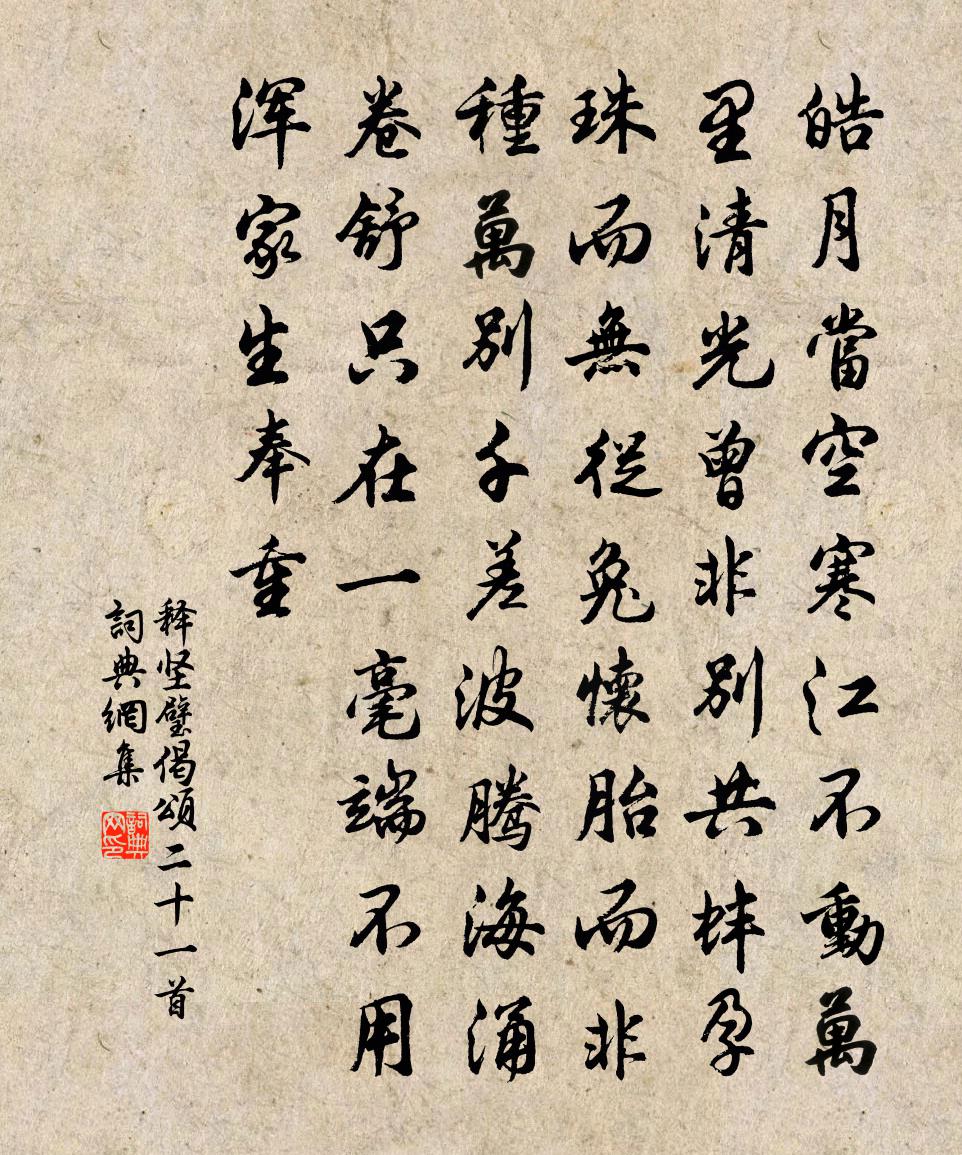 皓月當空寒江不動萬
里清光曾非別共蚌孕
珠而無從兔懷胎而非
種萬別千差波騰海涌
卷舒只在一毫端不用
浑家生奉重
释坚璧偈頌二十一首
詞典網集
詞典网印